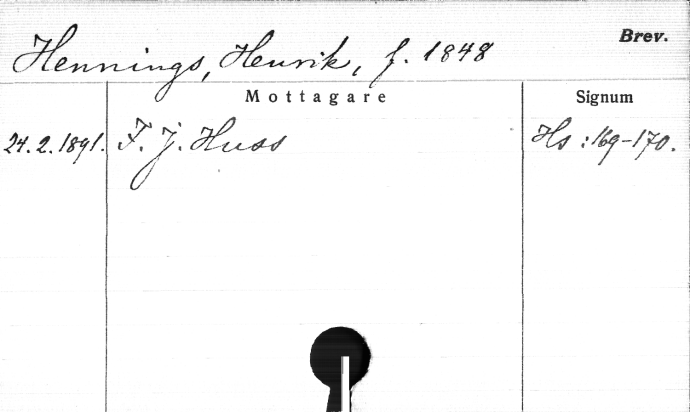 Brev.
Hennings, Henrik, f. 1848
Mottagare Signum
24.2.1891. F. J. Huss Hs:169-170.